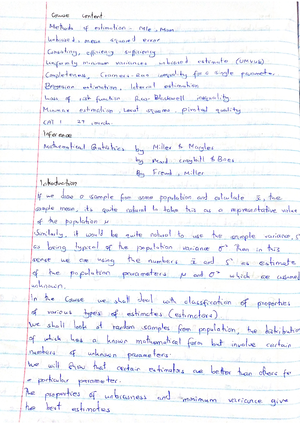 Course content
Methods of estimation - mle, Mom
Unbiased, mean squared error
Consistency, efficiency sufficiency
Uniformly minimum variances unbiased estimate (UMVUE)
Completeness, Crammer-Rao inequality for a single parameter
Bayesian estimation, interval estimation
Loss of risk function Rao-Blackwell inequality
Minimax estimation, Least squares pivotal quality
CAT 1
Inference
Mathematical Statistics by Miller &
by
By Freund, Miller
Introduction
If we draw a sample from some population and calculate x̄, the
sample mean, its quite natural to take this as a representative value
of the population μ
Similarly, it would be quite natural to use the sample variance, S²
as being typical of the population variance σ² Then in this
sense we are using the numbers x̄ and S² as estimate
of the population parameters μ and σ² which are assumed
unknown.
In the Course we shall deal with classification of properties
of various types of estimates (estimators)
We shall look at random samples from population, the distribution
of which has a known mathematical form but involve certain
numbers of unknown parameters.
We will show that certain estimators are better than others for
a particular parameter.
The properties of unbiasness and minimum variance give
the best estimates